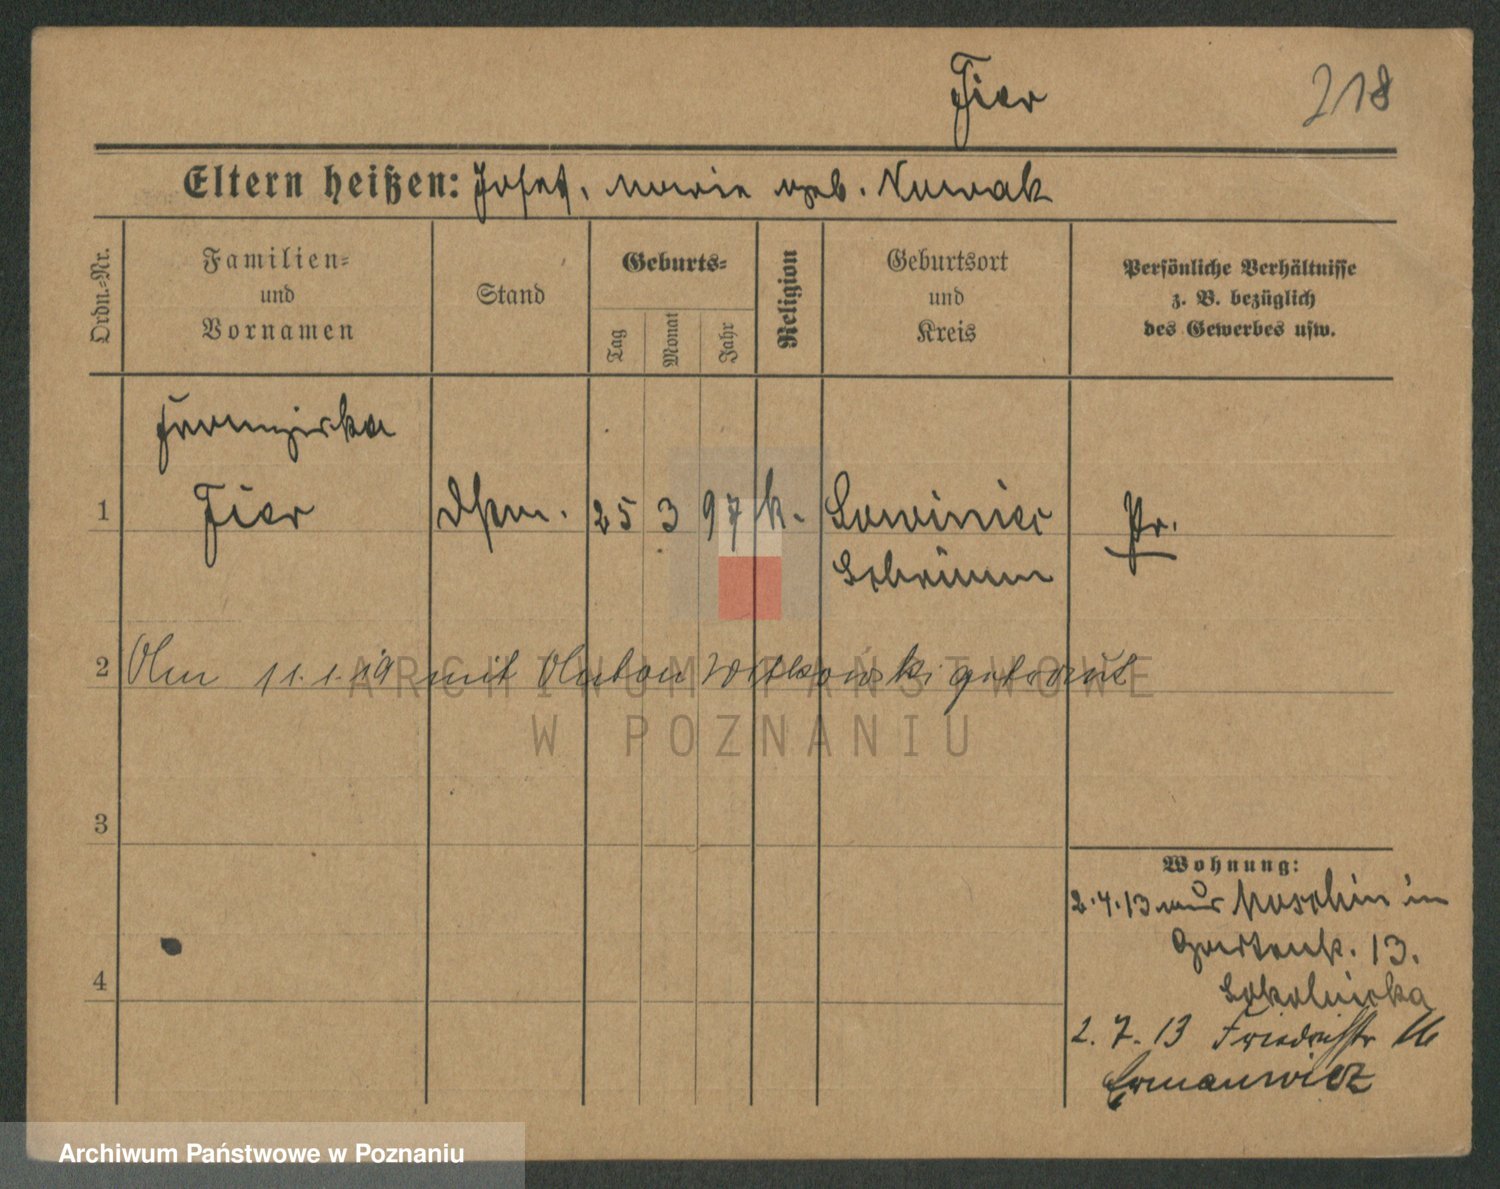 Fier
218
Eltern heißen: Josef, Marie geb. Nowak
Ordn.-Nr.
Familien-
und
Vornamen
Stand
Geburts-
Tag
Monat
Jahr
Religion
Geburtsort
und
Kreis
Persönliche Verhältnisse
z. B. bezüglich
des Gewerbes usw.
Franziska
1 Fier Dstm. 25 3 97 k. Lowiniec Pr.
Schrimm
2 Am 11.1.19 mit Anton Witkowski getraut
3
4
Wohnung:
2.4.13 aus Moschin in
Gartenstr. 13.
Sokolnicka
2.7.13 Friedrichstr 16
ARCHIWUM PAŃSTWOWE
W POZNANIU
Archiwum Państwowe w Poznaniu